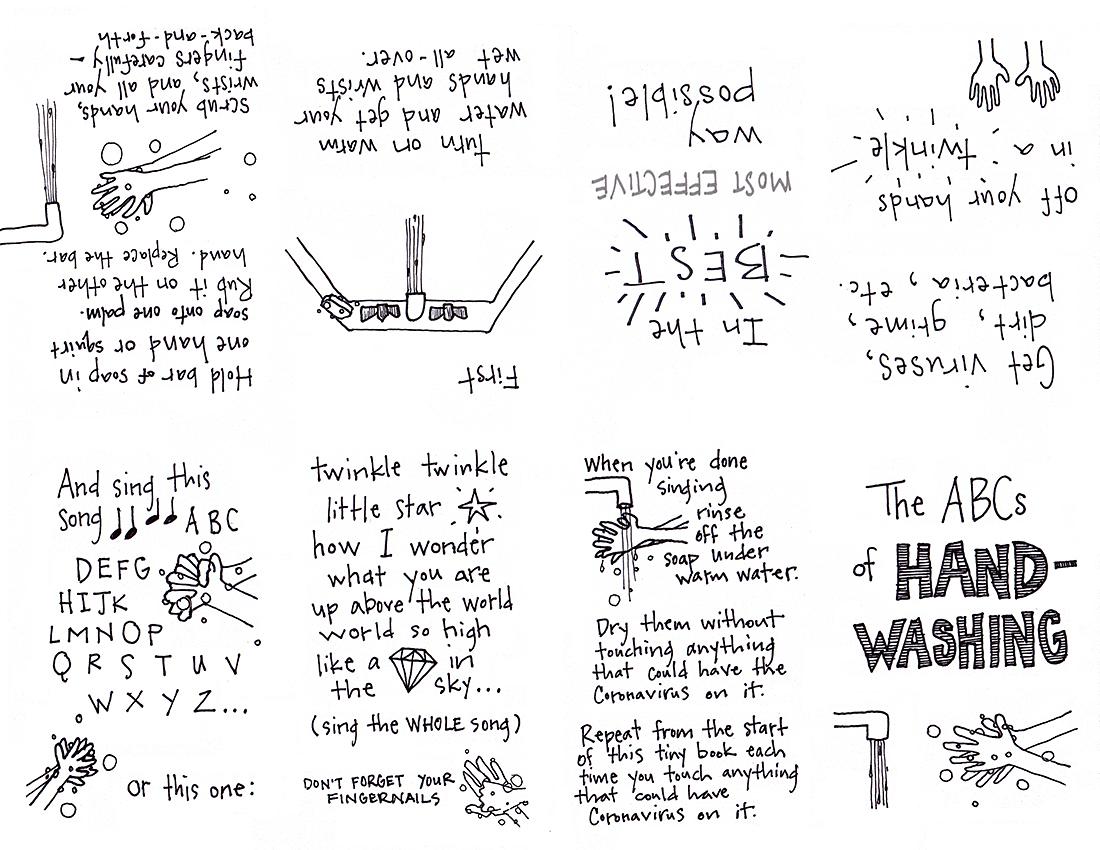 The ABCs
of HAND-
WASHING
Get viruses,
dirt, grime,
bacteria, etc.
off your hands
in a twinkle.
In the
BEST
MOST EFFECTIVE
way
possible!
First
turn on warm
water and get your
hands and wrists
wet all-over.
Hold bar of soap in
one hand or squirt
soap onto one palm.
Rub it on the other
hand. Replace the bar.
scrub your hands,
wrists, and all your
fingers carefully -
back-and-forth
And sing this
song ABC
DEFG
HIJK
LMNOP
Q R S T U V
W X Y Z...
or this one:
twinkle twinkle
little star
how I wonder
what you are
up above the world
world so high
like a in
the sky...
(sing the WHOLE song)
DON'T FORGET YOUR
FINGERNAILS
When you're done
singing
rinse
off the
soap under
warm water.
Dry them without
touching anything
that could have the
Coronavirus on it.
Repeat from the start
of this tiny book each
time you touch anything
that could have
Coronavirus on it.